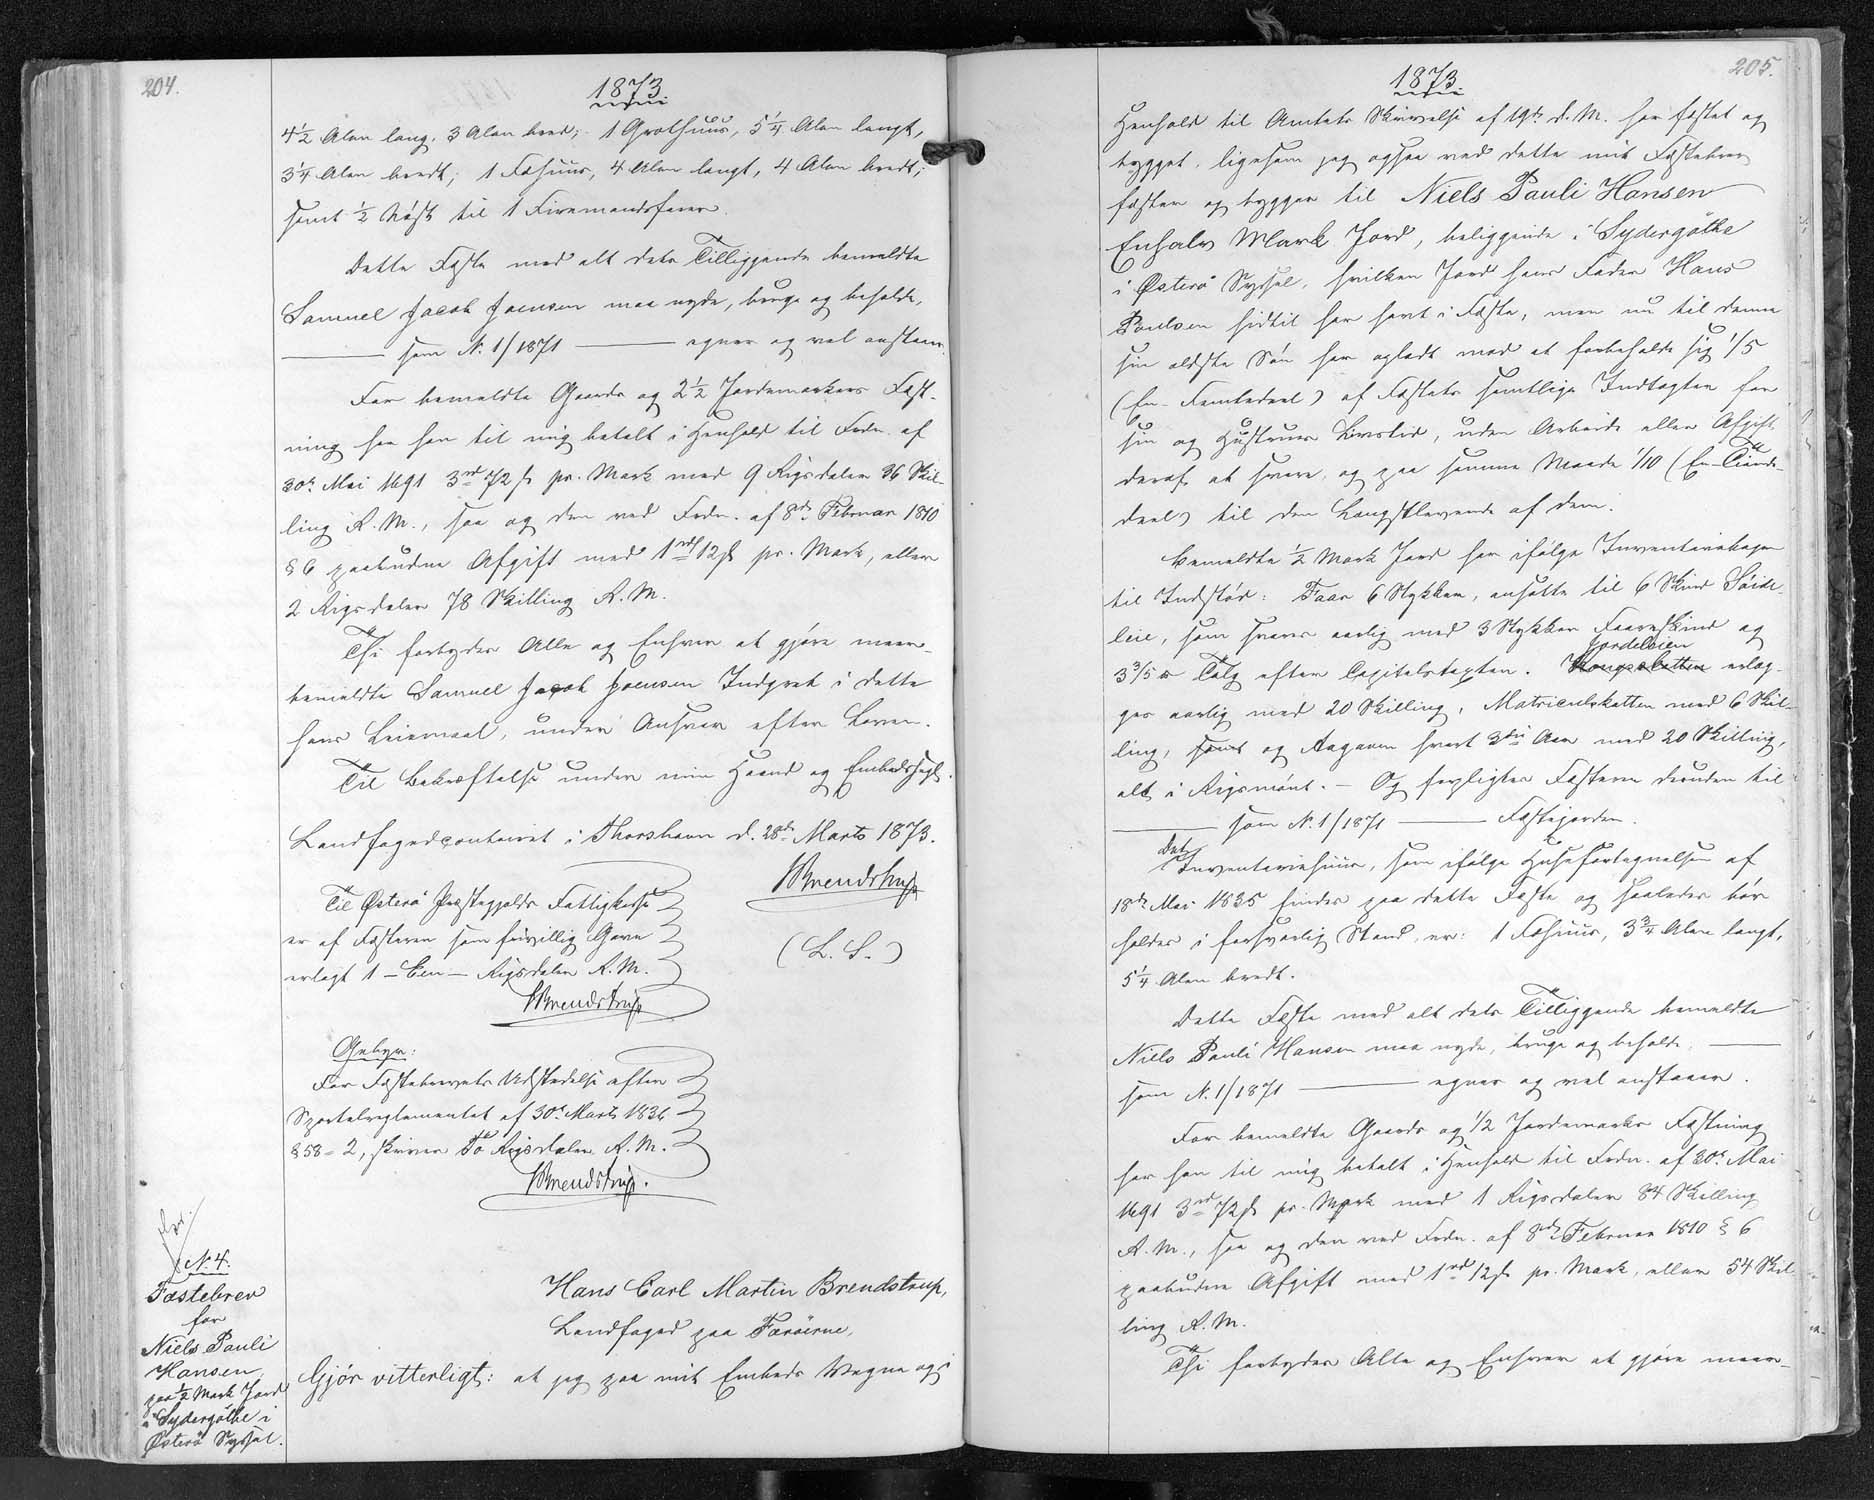 204.
1873
4½ Alen lang, 3 Alen bred; 1 Grothuus, 5¼ Alen langt,
3¼ Alen bredt; 1 Fæhuus, 4 Alen langt, 4 Alen bredt;
samt ½ Nøst til 1 Firemandsfarer.
Dette Fæste med alt dets Tilliggende bemeldte
Samuel Jacob Joensen maa nyde, bruge og beholde,
som N. 1/1871 egner og vel anstaaer.
For bemeldte Gaards og 2½ Jordemarkers Fæst-
ning har han til mig betalt i Henhold til Frdn. af
30te Mai 1691 3rd 72 s pr. Mark med 9 Rigsdaler 36 Skil-
ling R. M., saa og den ved Frdn. af 8de Februar 1810
§ 6 paabudne Afgift med 1rd 12 s pr. Mark, eller
2 Rigsdaler 78 Skilling R. M.
Thi forbydes Alle og Enhver at gjøre meer-
bemeldte Samuel Jacob Joensen Indgreb i dette
hans Leiemaal, under Ansvar efter Loven.
Til Bekræftelse under min Haand og Embedssegl.
Landfogedcontoiret i Thorshavn d. 28de Marts 1873.
HBrendstrup
(L. S.)
Til Østerø Præstegjelds Fattigkasse
er af Fæsteren som frivillig Gave
erlagt 1 - Een - Rigsdaler R. M.
HBrendstrup
Gebyr:
For Fæstebrevets Udstedelse efter
Sportelreglementet af 30te Marts 1836
§ 58 = 2, skriver To Rigsdaler R. M.
HBrendstrup.
N. 4.
Fæstebrev
for
Niels Pauli
Hansen
paa ½ Mark Jord
i Sydergøthe i
Østerø Syssel.
Hans Carl Martin Brendstrup,
Landfoged paa Færøerne,
Gjør vitterligt: at jeg paa mit Embeds Vegne og i
205.
1873
Henhold til Amtets Skrivelse af 19de d. M. har fæstet og
bygget, ligesom jeg ogsaa ved dette mit Fæstebrev
fæster og bygger til Niels Pauli Hansen
Enhalv Mark Jord, beliggende i Sydergøthe
i Østerø Syssel, hvilken Jord hans Fader Hans
Poulsen hidtil har havt i Fæste, men nu til denne
sin ældste Søn har opladt mod at forbeholde sig 1/5
(En Femtedeel) af Fæstets samtlige Indtægter for
sin og Hustrues Levetid, uden Arbeide eller Afgift
deraf at svare, og paa samme Maade 1/10 (En Tiende-
deel) til den Længstlevende af dem.
Bemeldte ½ Mark Jord har ifølge Inventariebogen
til Indstød: Faar 6 Stykker, ansatte til 6 Skind Søide-
leie, som svares aarlig med 3 Stykker Faareskind og
3 3/5 ℔ Talg efter Capitelstaxten. Kongsskatten Jordeleien erlæg-
ges aarlig med 20 Skilling, Matriculskatten med 6 Skil-
ling, samt og Aagaven hvert 3die Aar med 20 Skilling,
alt i Rigsmønt. - Og forpligtes Fæsteren desuden til
som N. 1/1871 Fæstejorden.
Det Inventariehuus, som ifølge Husefortegnelsen af
18de Mai 1835 findes paa dette Fæste og saaledes bør
holdes i forsvarlig Stand, er: 1 Fæhuus, 3¾ Alen langt,
5¼ Alen bredt.
Dette Fæste med alt dets Tilliggende bemeldte
Niels Pauli Hansen maa nyde, bruge og beholde,
som N. 1/1871 egner og vel anstaaer.
For bemeldte Gaards og 1/2 Jordemarks Fæstning
har han til mig betalt i Henhold til Frdn. af 30te Mai
1691 3rd 72 s pr. Mark med 1 Rigsdaler 84 Skilling
R. M., saa og den ved Frdn. af 8de Februar 1810 § 6
paabudne Afgift med 1rd 12 s pr. Mark, eller 54 Skil-
ling R. M.
Thi forbydes Alle og Enhver at gjøre meer-